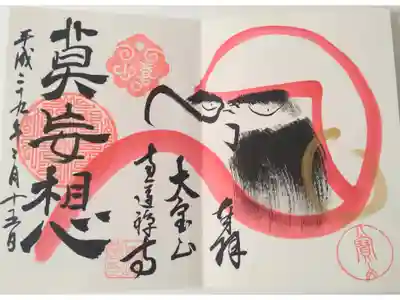 奉拝
大宝山
道禅寺
莫妄想
平成二十九年三月十五日